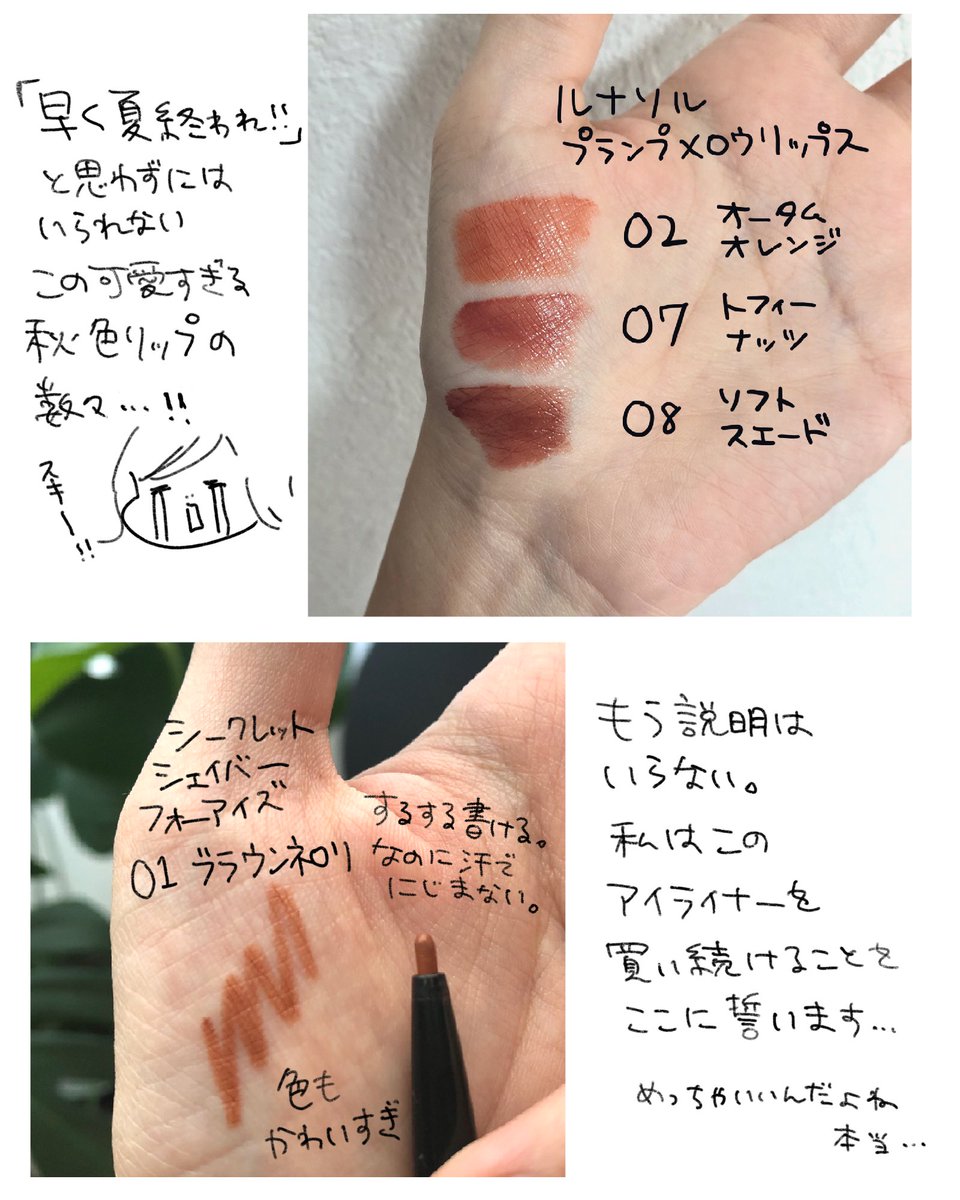 「早く夏終われ!!」
と思わずには
いられない
この可愛すぎる
秋色リップの
数々…!!
スキー!!
ルナソル
プランプメロウリップス
02 オータム
オレンジ
07 トフィー
ナッツ
08 ソフト
スエード
シークレット
シェイバー
フォーアイズ
01 ブラウンネロリ
するする書ける。
なのに汗で
にじまない。
色も
かわいすぎ
もう説明は
いらない。
私はこの
アイライナーを
買い続けることを
ここに誓います…
めっちゃいいんだよね
本当…